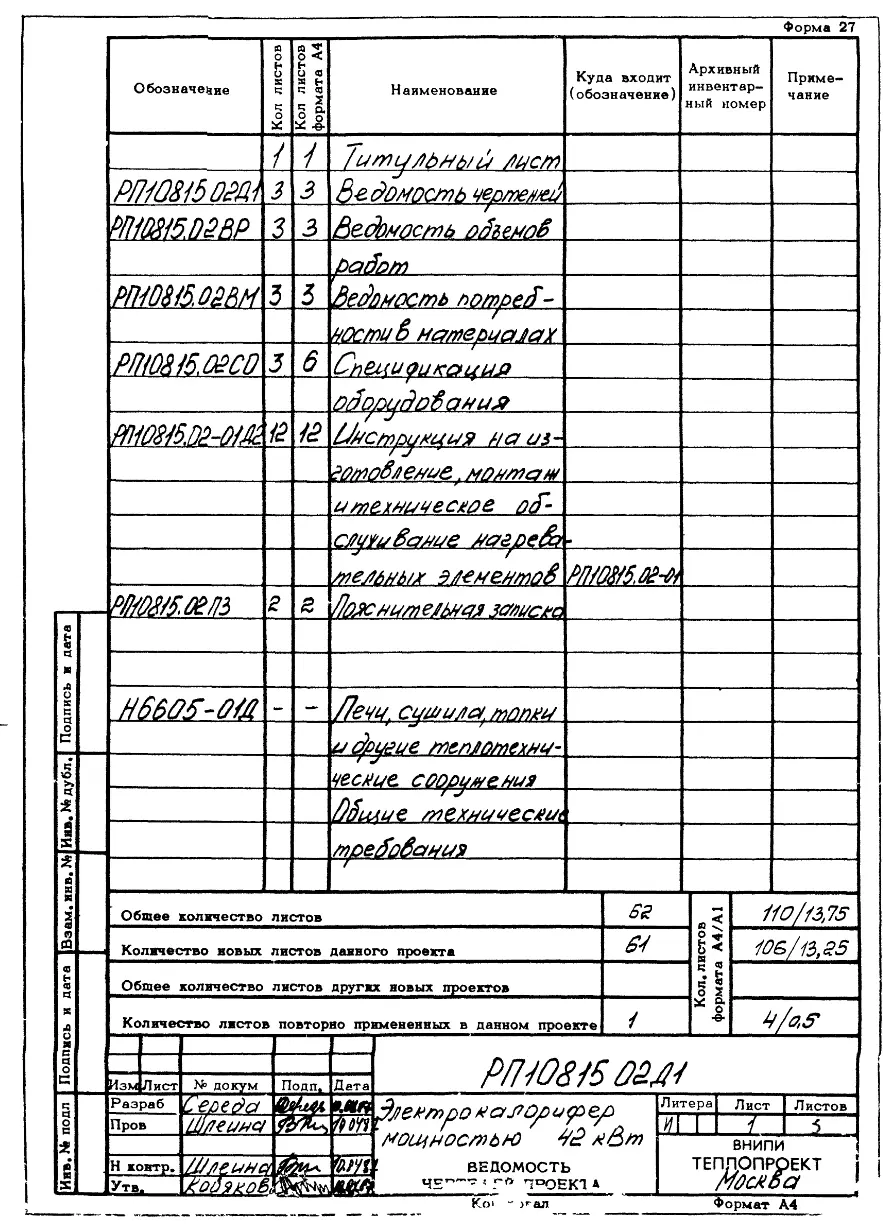 Форма 27
Обозначение Кол листов Кол листов формата А4 Наименование Куда входит (обозначение) Архивный инвентарный номер Примечание
1 1 Титульный лист
РП10815 02Д1 3 3 Ведомость чертежей
РП10815.02ВР 3 3 Ведомость объемов
работ
РП10815.02ВМ 3 3 Ведомость потреб-
ности в материалах
РП10815.02СО 3 6 Спецификация
оборудования
РП10815.02-01Д2 12 12 Инструкция на из-
готовление, монтаж
и техническое об-
служивание нагрева-
тельных элементов РП10815.02-01
РП10815.02ПЗ 2 2 Пояснительная записка
Н6605-01Д - - Печи, сушила, топки
и другие теплотехни-
ческие сооружения
Общие технические
требования
Общее количество листов 62 110/13,75
Количество новых листов данного проекта 61 106/13,25
Общее количество листов других новых проектов
Количество листов повторно примененных в данном проекте 1 4/0,5
Кол. листов формата А4/А1
Подпись и дата
Инв. № дубл.
Взам. инв. №
Подпись и дата
Инв. № подл
РП10815 02Д1
Изм Лист № докум Подп. Дата
Разраб Середа
Пров Шлеина
Н контр. Шлеина
Утв. Кобяков
Электрокалорифер
мощностью 42 кВт
ВЕДОМОСТЬ
Литера Лист Листов
И 1 3
ВНИПИ
ТЕПЛОПРОЕКТ
Москва
Формат А4